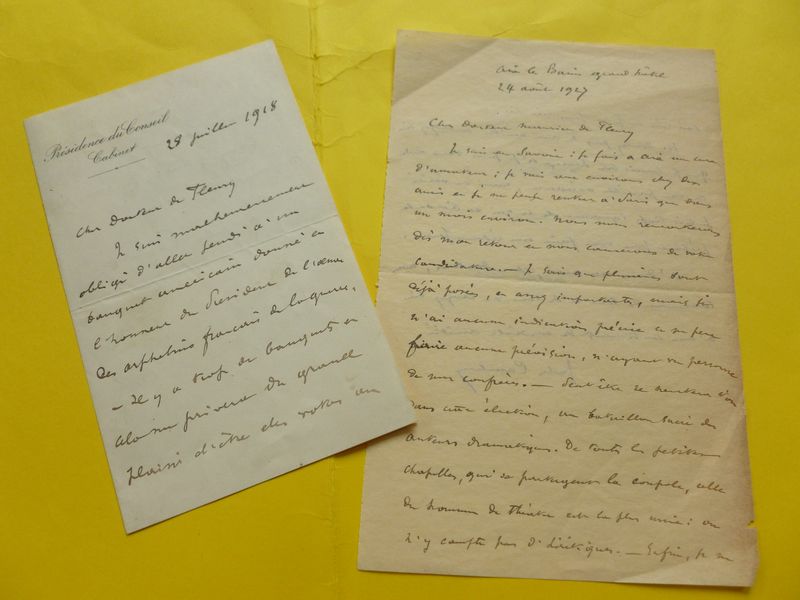 Présidence du Conseil
Cabinet
28 juillet 1918
Cher Docteur de Fleury
Je suis malheureusement
obligé d'aller jeudi à un
banquet américain donné en
l'honneur du Président de l'œuvre
des orphelins français de la guerre,
- Il y a trop de banquets et
cela me privera du grand
plaisir d'être des votres au
Aix les Bains grand hôtel
24 août 1927
Cher Docteur Maurice de Fleury
Je suis en Savoie : je fais à Aix une cure
d'amateur : je suis aux environs chez des
amis et je ne pense rentrer à Paris que dans
un mois environ. Nous nous rencontrerons
dès mon retour et nous causerons de votre
candidature. - Je sais que plusieurs sont
déjà posées, et assez importantes, mais je
n'ai aucune indication précise et ne peux
faire aucune prévision, n'ayant vu personne
de nos confrères. - Peut être se heurtera t'on
dans cette élection, au bataillon sacré des
auteurs dramatiques. De toutes les petites
chapelles, qui se partagent la coupole, celle
des hommes de théâtre est la plus unie : on
n'y compte pas d'hérétiques. - Enfin, je ne